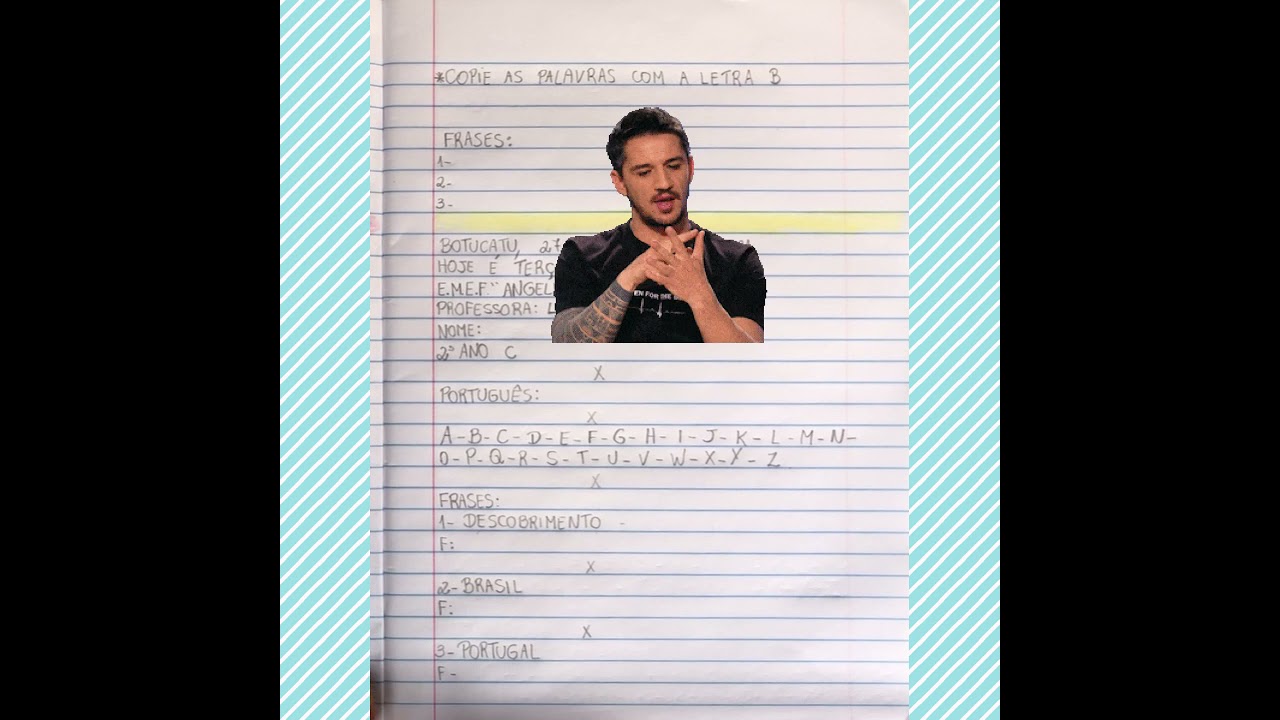 *COPIE AS PALAVRAS COM A LETRA B
FRASES:
1-
2-
3-
BOTUCATU, 27
HOJE É TERÇ
E.M.E.F." ANGEL
PROFESSORA: L
EN FOR THE
NOME:
2º ANO C
X
PORTUGUÊS:
X
A-B-C-D-E-F-G-H-I-J-K-L-M-N-
O-P-Q-R-S-T-U-V-W-X-Y-Z
X
FRASES:
1- DESCOBRIMENTO -
F:
X
2- BRASIL
F:
X
3- PORTUGAL
F-